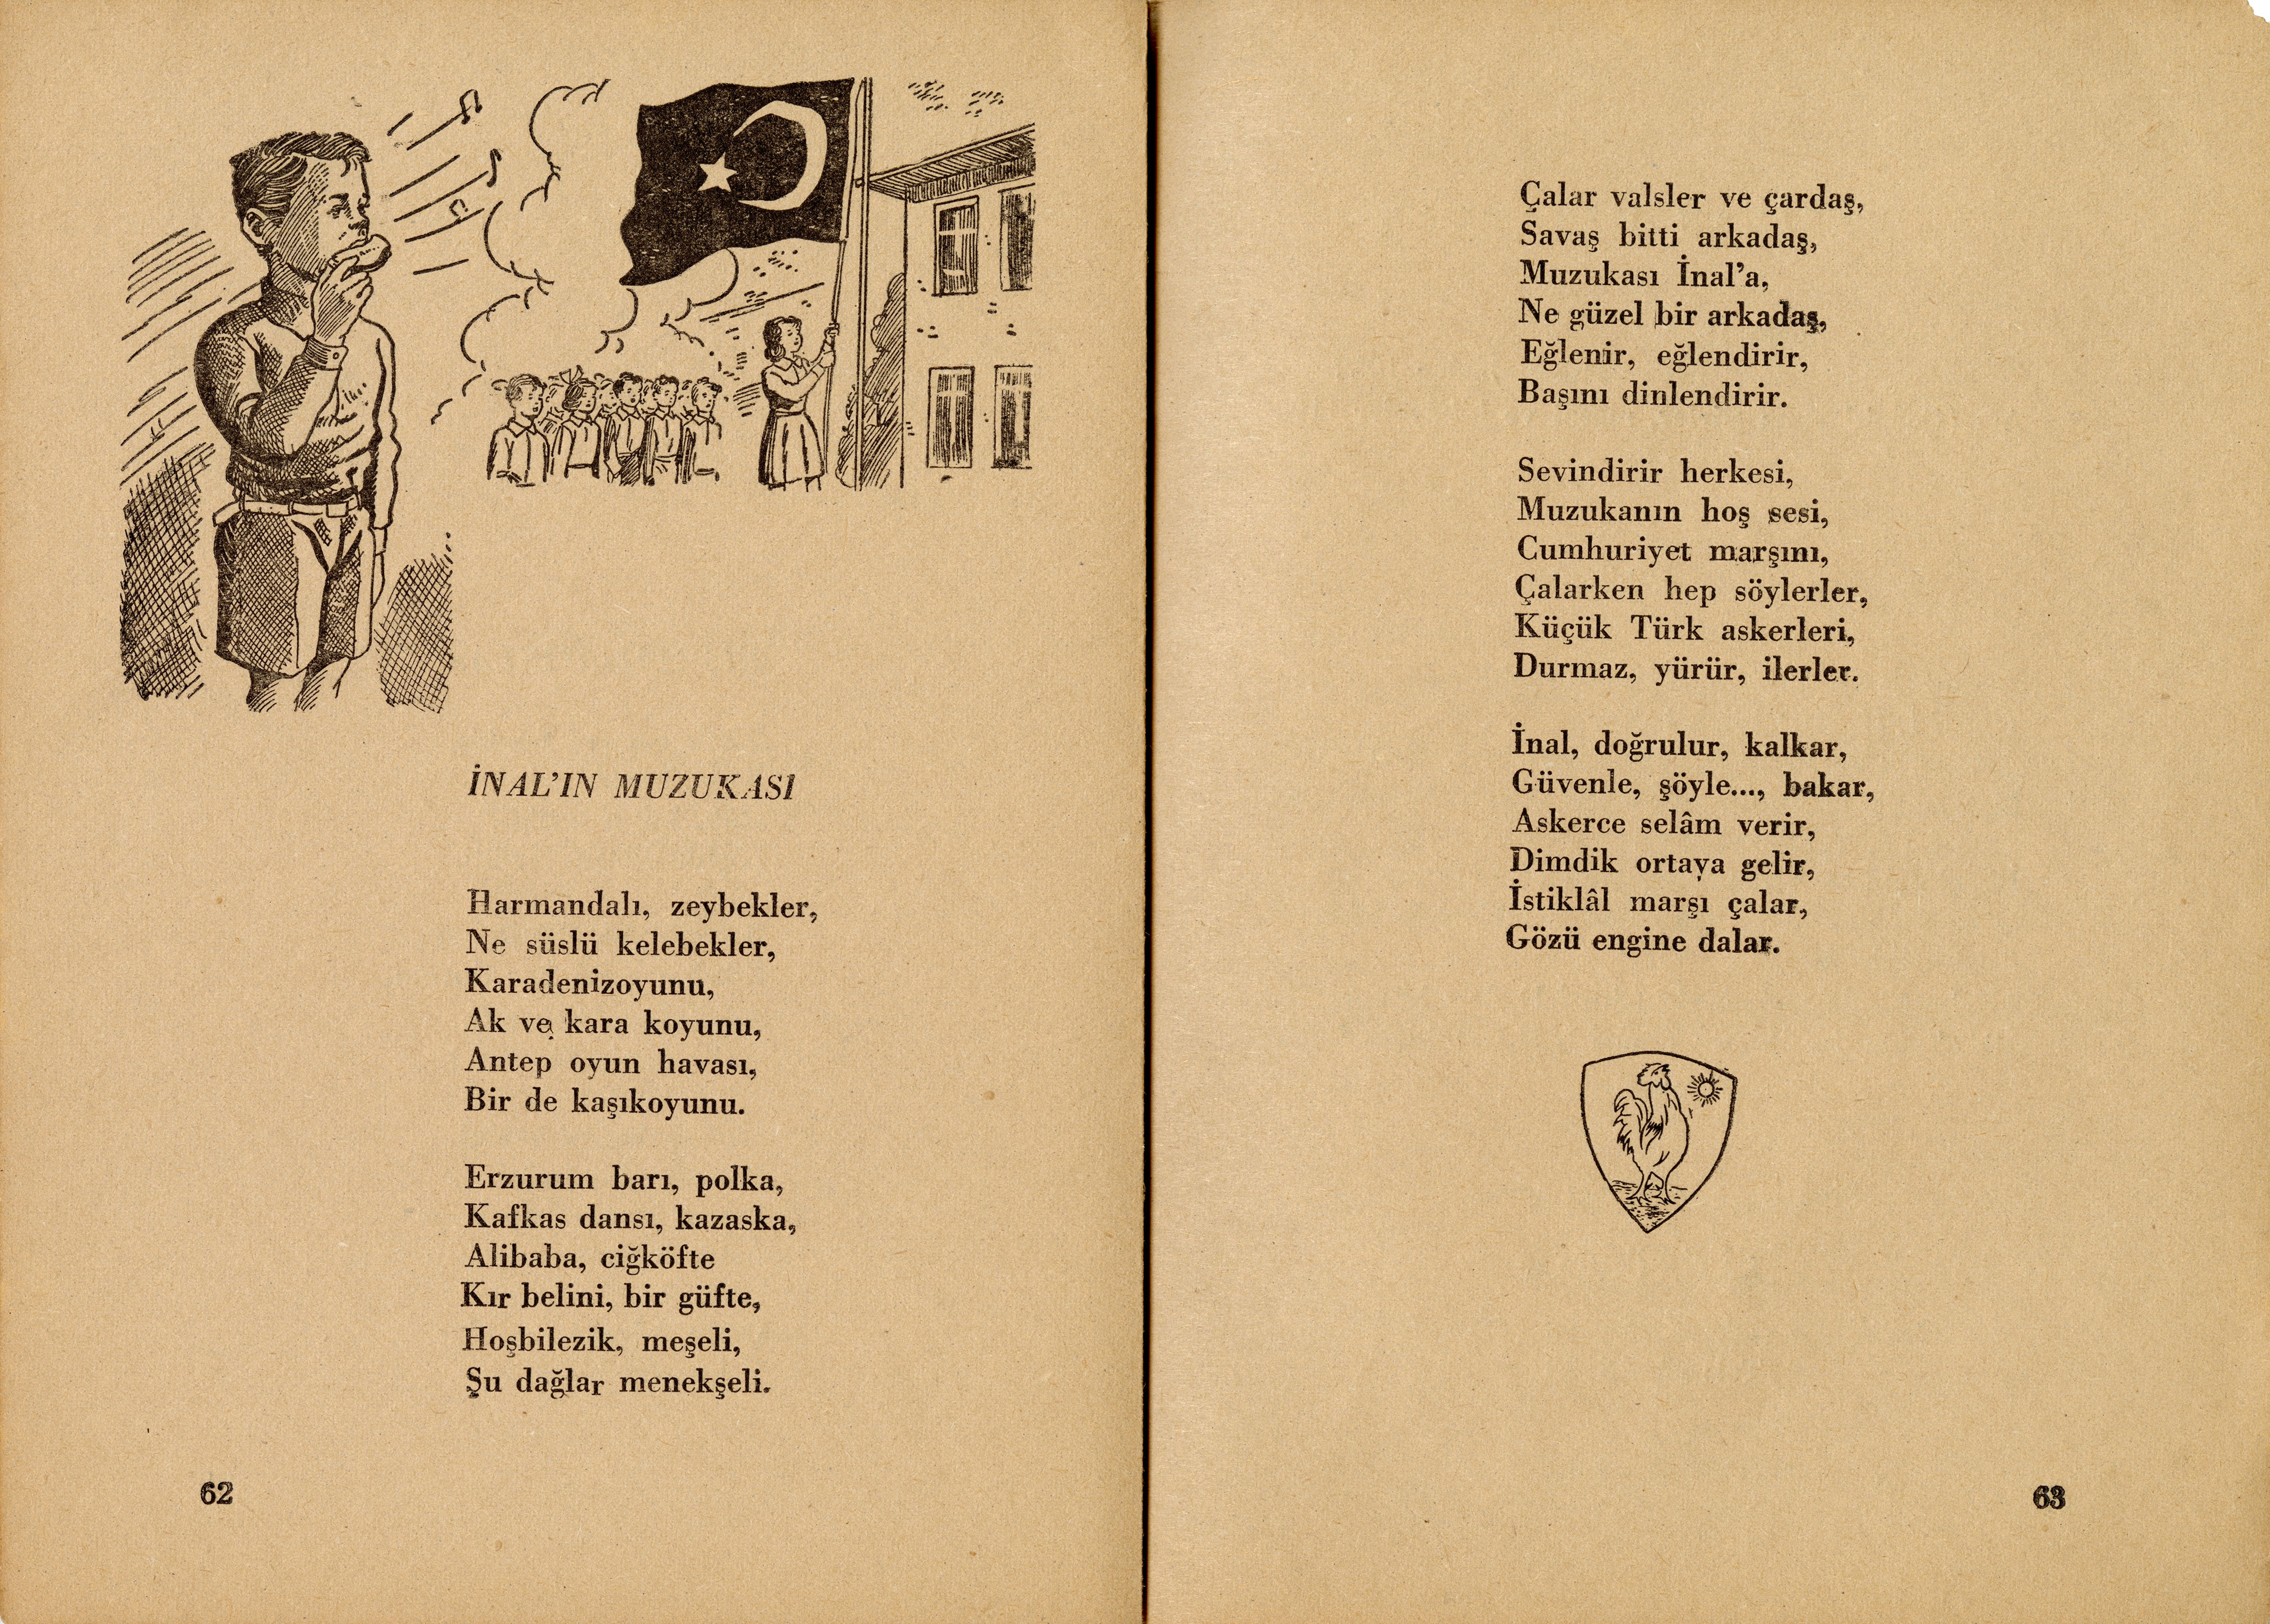 İNAL'IN MUZUKASI
Harmandalı, zeybekler,
Ne süslü kelebekler,
Karadenizoyunu,
Ak ve kara koyunu,
Antep oyun havası,
Bir de kaşıkoyunu.
Erzurum barı, polka,
Kafkas dansı, kazaska,
Alibaba, ciğköfte
Kır belini, bir güfte,
Hoşbilezik, meşeli,
Şu dağlar menekşeli.
62
Çalar valsler ve çardaş,
Savaş bitti arkadaş,
Muzukası İnal'a,
Ne güzel bir arkadaş,
Eğlenir, eğlendirir,
Başını dinlendirir.
Sevindirir herkesi,
Muzukanın hoş sesi,
Cumhuriyet marşını,
Çalarken hep söylerler,
Küçük Türk askerleri,
Durmaz, yürür, ilerler.
İnal, doğrulur, kalkar,
Güvenle, şöyle..., bakar,
Askerce selâm verir,
Dimdik ortaya gelir,
İstiklâl marşı çalar,
Gözü engine dalar.
63